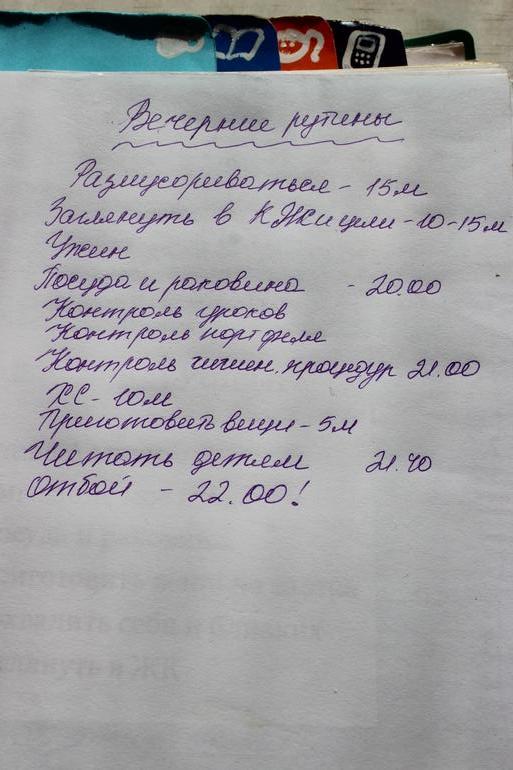 Вечерние рутины
Размусориваться - 15м
Заглянуть в КЖ и цели - 10-15м
Ужин
Посуда и раковина - 20.00
Контроль уроков
Контроль портфеля
Контроль гигиен. процедур 21.00
ХС - 10м
Приготовить вещи - 5м
Читать детям 21.40
Отбой - 22.00!